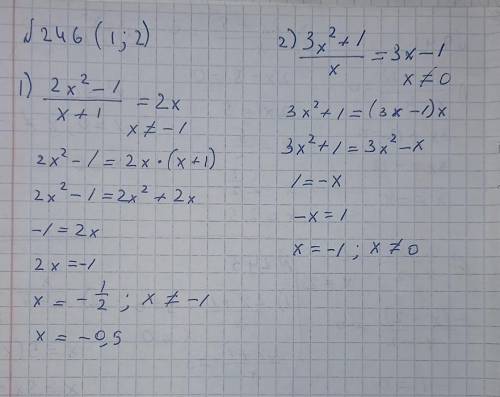 №246 (1;2)
1) (2x² - 1)/(x + 1) = 2x
x ≠ -1
2x² - 1 = 2x · (x + 1)
2x² - 1 = 2x² + 2x
-1 = 2x
2x = -1
x = -1/2 ; x ≠ -1
x = -0,5
2) (3x² + 1)/x = 3x - 1
x ≠ 0
3x² + 1 = (3x - 1)x
3x² + 1 = 3x² - x
1 = -x
-x = 1
x = -1 ; x ≠ 0